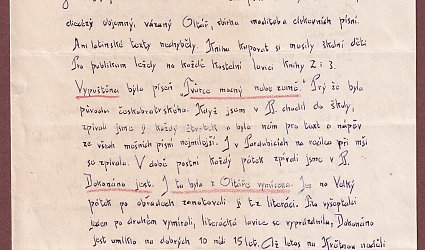 diecézy objemný, vázaný Oltář, sbírka modliteb a církevních písní.
Ani latinské texty nechyběly. Knihu kupovat si musily školní děti
Pro publikum ležely na každé kostelní lavici knihy 2 i 3.
Vypuštěna byla píseň "Tvůrce mocný nebe země." Prý že byla
původu českobratrského. Když jsem v B. chodil do školy,
zpívali jsme ji každý čtvrtek a byla nám pro text a nápěv
ze všech mešních písní nejmilejší. I v Pardubicích na ročko při mši
se zpívala. V době postní každý pátek zpívali jsme v B.
Dokonáno jest. I ta byla z Oltáře vymícena. Jen na Velký
pátek po obřadech zanotovali ji t.z literáci. Ale
jeden po druhém vymírali, literácká lavice se vyprázdnila, Dokonáno
jest umlklo na dobrých 10 niž 15 let. Až letos na Květnou neděli